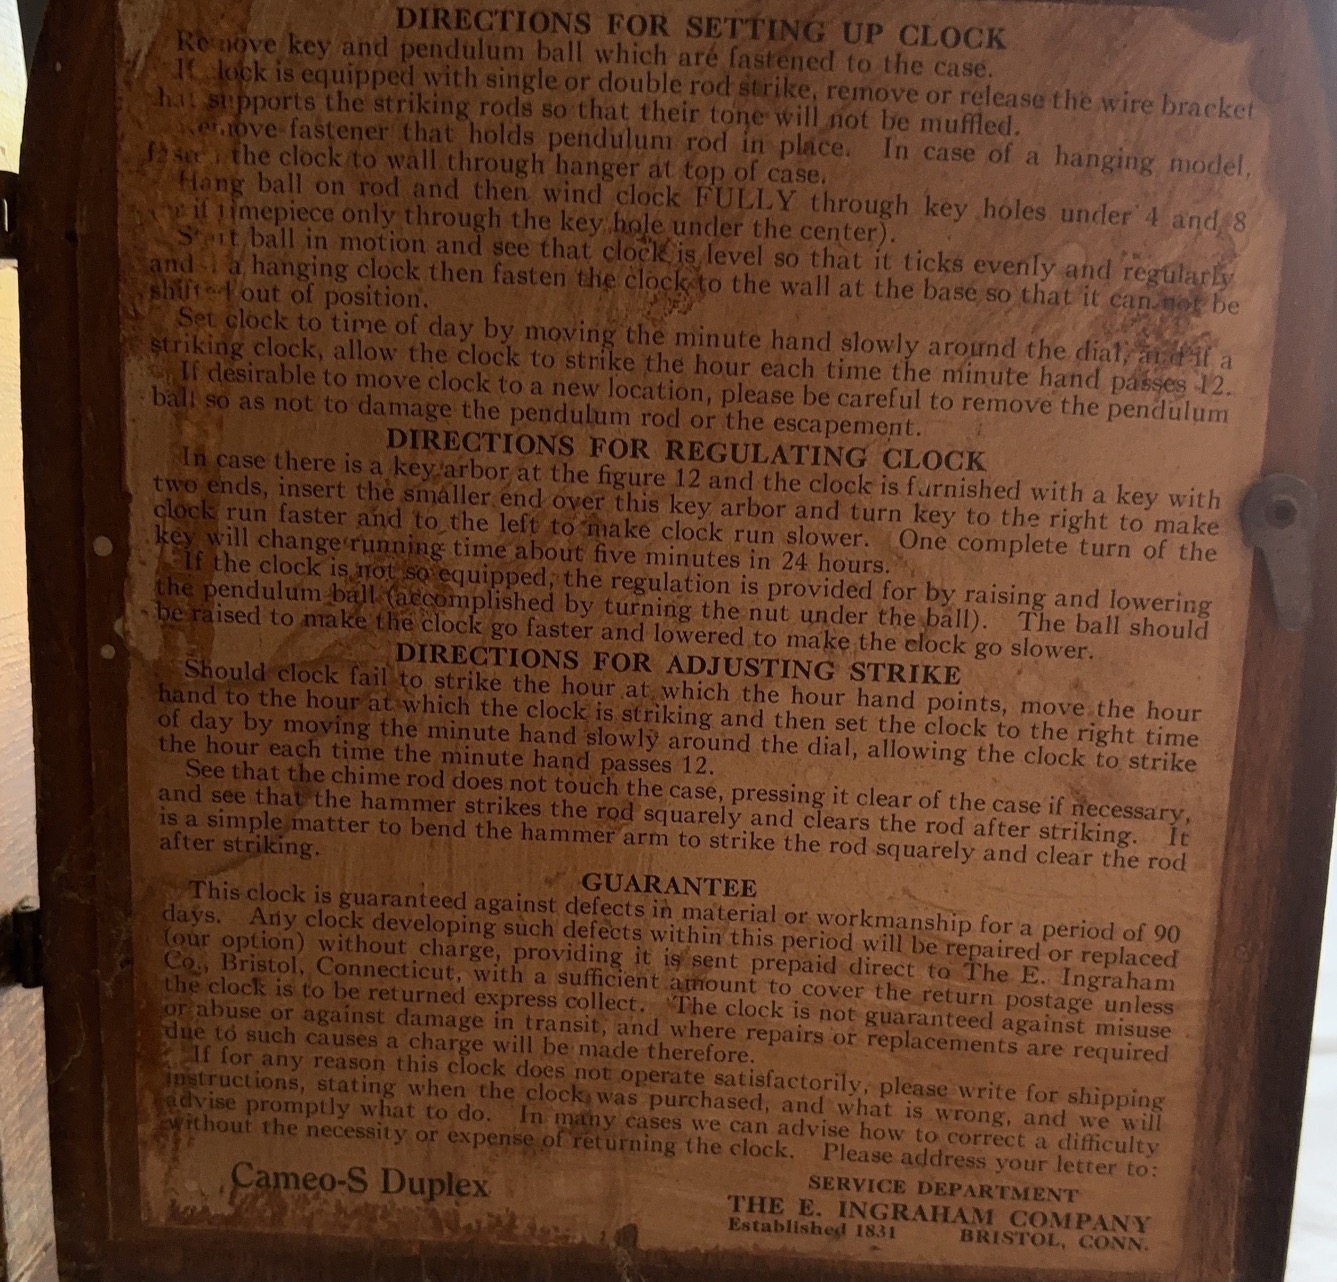 DIRECTIONS FOR SETTING UP CLOCK
Remove key and pendulum ball which are fastened to the case.
If clock is equipped with single or double rod strike, remove or release the wire bracket
that supports the striking rods so that their tone will not be muffled.
Remove fastener that holds pendulum rod in place. In case of a hanging model,
fasten the clock to wall through hanger at top of case.
Hang ball on rod and then wind clock FULLY through key holes under 4 and 8
if timepiece only through the key hole under the center).
Start ball in motion and see that clock is level so that it ticks evenly and regularly
and a hanging clock then fasten the clock to the wall at the base so that it can not be
shifted out of position.
Set clock to time of day by moving the minute hand slowly around the dial, and if a
striking clock, allow the clock to strike the hour each time the minute hand passes 12.
If desirable to move clock to a new location, please be careful to remove the pendulum
ball so as not to damage the pendulum rod or the escapement.
DIRECTIONS FOR REGULATING CLOCK
In case there is a key arbor at the figure 12 and the clock is furnished with a key with
two ends, insert the smaller end over this key arbor and turn key to the right to make
clock run faster and to the left to make clock run slower. One complete turn of the
key will change running time about five minutes in 24 hours.
If the clock is not so equipped, the regulation is provided for by raising and lowering
the pendulum ball (accomplished by turning the nut under the ball). The ball should
be raised to make the clock go faster and lowered to make the clock go slower.
DIRECTIONS FOR ADJUSTING STRIKE
Should clock fail to strike the hour at which the hour hand points, move the hour
hand to the hour at which the clock is striking and then set the clock to the right time
of day by moving the minute hand slowly around the dial, allowing the clock to strike
the hour each time the minute hand passes 12.
See that the chime rod does not touch the case, pressing it clear of the case if necessary,
and see that the hammer strikes the rod squarely and clears the rod after striking. It
is a simple matter to bend the hammer arm to strike the rod squarely and clear the rod
after striking.
GUARANTEE
This clock is guaranteed against defects in material or workmanship for a period of 90
days. Any clock developing such defects within this period will be repaired or replaced
(our option) without charge, providing it is sent prepaid direct to The E. Ingraham
Co., Bristol, Connecticut, with a sufficient amount to cover the return postage unless
the clock is to be returned express collect. The clock is not guaranteed against misuse
or abuse or against damage in transit, and where repairs or replacements are required
due to such causes a charge will be made therefore.
If for any reason this clock does not operate satisfactorily, please write for shipping
instructions, stating when the clock was purchased, and what is wrong, and we will
advise promptly what to do. In many cases we can advise how to correct a difficulty
without the necessity or expense of returning the clock. Please address your letter to:
Cameo-S Duplex
SERVICE DEPARTMENT
THE E. INGRAHAM COMPANY
Established 1831 BRISTOL, CONN.